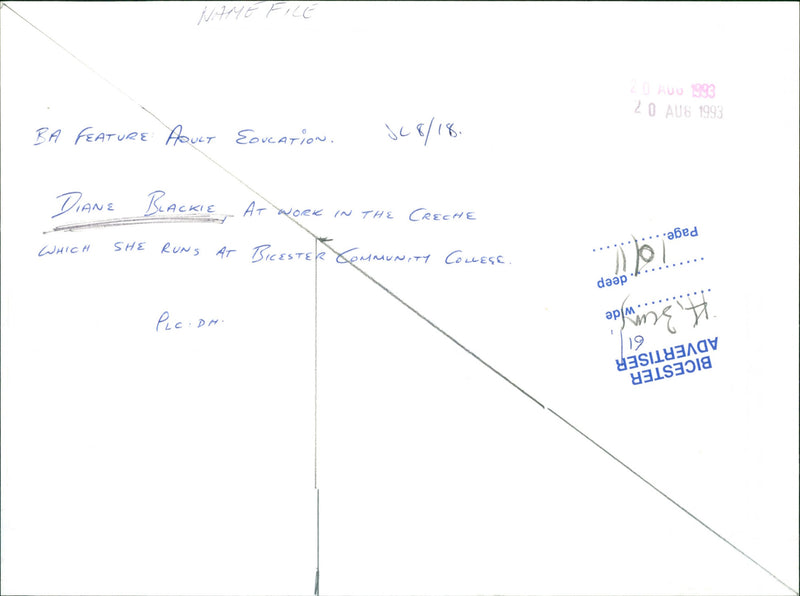 NAME FILE
20 AUG 1993
20 AUG 1993
BA FEATURE ADULT EDUCATION. JL8/18.
DIANE BLACKIE, AT WORK IN THE CRECHE
WHICH SHE RUNS AT BICESTER COMMUNITY COLLEGE.
PLC. DH.
BICESTER
ADVERTISER
wide
deep
Page